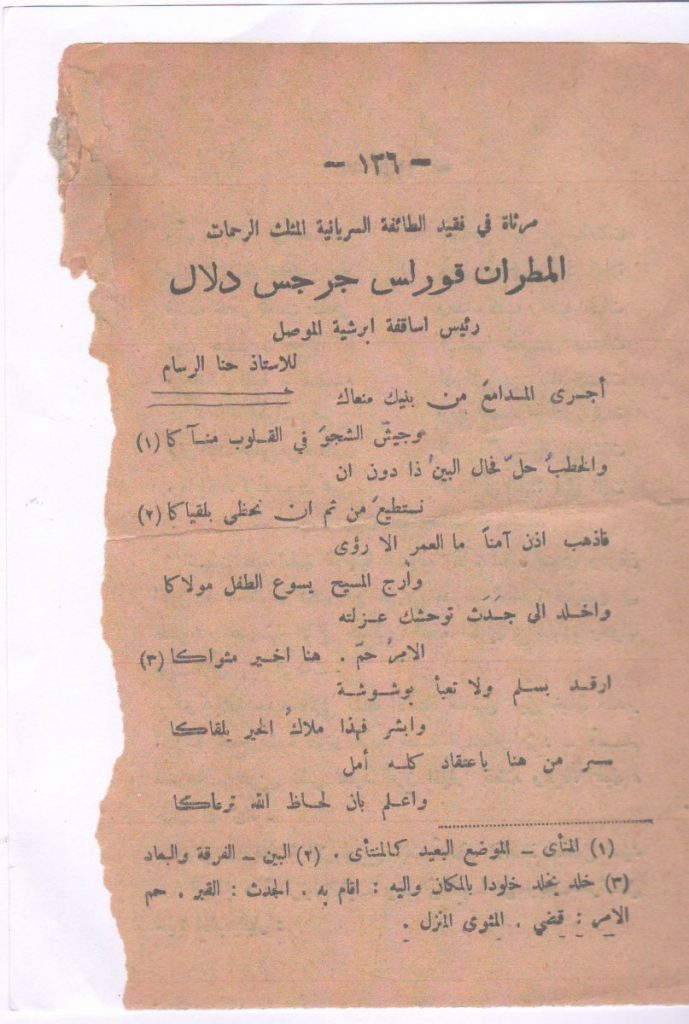 - ١٣٦ -
مرثاة في فقيد الطائفة السريانية المثلث الرحمات
المطران قورلس جرجس دلال
رئيس اساقفة ابرشية الموصل
للاستاذ حنا الرسام
أجـرى المـدامعَ من بنيك منعاك
وجيشّ الشجوَ في القـلوب منـآكا (١)
والخطبُ حلّ فحال البينُ ذا دون ان
نستطيعَ من ثم ان نحظى بلقياكا (٢)
فاذهب اذن آمناً ما العمر الا رؤى
وأرج المسيح يسوع الطفل مولاكا
واخـلد الى جَـدَث توحشك عـزلته
الامرُ حمّ . هنا اخـير مثواكـا (٣)
ارقـد بسلم ولا تعبأ بوشوشـة
وابشر فهذا ملاكُ الخير يلقاكا
سـر من هنا باعتقاد كلـه أمل
واعـلم بان لحـاظ الله ترعاكا
(١) المنأى – الموضع البعيد كالمنتأى . (٢) البين – الفرقة والبعاد
(٣) خلد يخلد خلودا بالمكان واليه : اقام به . الجدث : القبر . حم
الامر : قضي . المثوى المنزل .